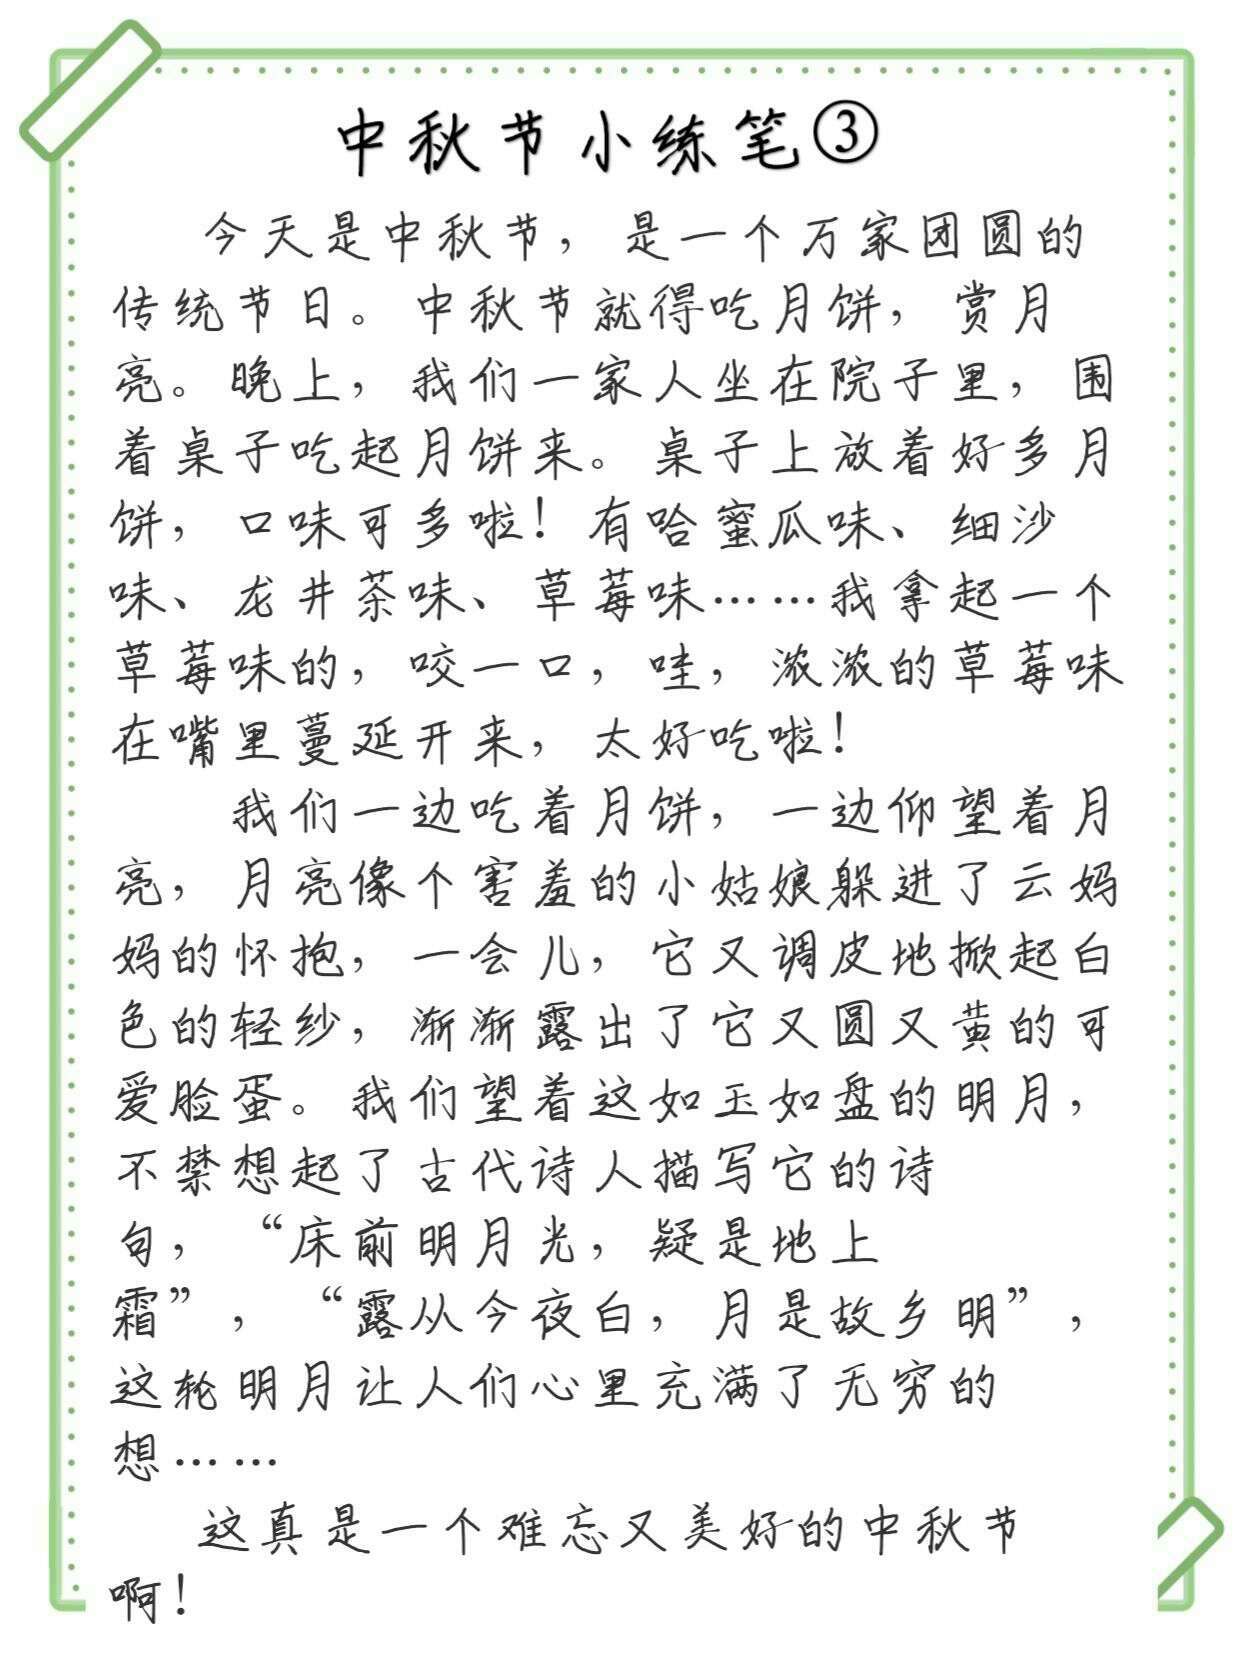 中秋节小练笔③
今天是中秋节，是一个万家团圆的
传统节日。中秋节就得吃月饼，赏月
亮。晚上，我们一家人坐在院子里，围
着桌子吃起月饼来。桌子上放着好多月
饼，口味可多啦！有哈蜜瓜味、细沙
味、龙井茶味、草莓味……我拿起一个
草莓味的，咬一口，哇，浓浓的草莓味
在嘴里蔓延开来，太好吃啦！
我们一边吃着月饼，一边仰望着月
亮，月亮像个害羞的小姑娘躲进了云妈
妈的怀抱，一会儿，它又调皮地掀起白
色的轻纱，渐渐露出了它又圆又黄的可
爱脸蛋。我们望着这如玉如盘的明月，
不禁想起了古代诗人描写它的诗
句，“床前明月光，疑是地上
霜”，“露从今夜白，月是故乡明”，
这轮明月让人们心里充满了无穷的
想……
这真是一个难忘又美好的中秋节
啊！